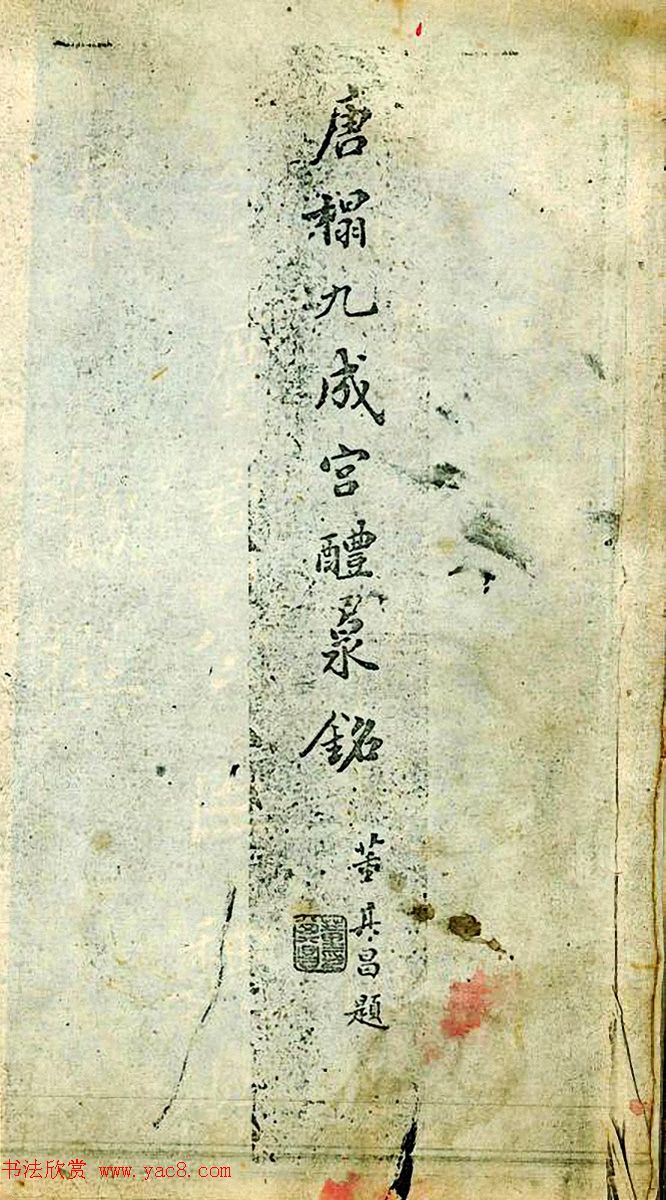 唐榻九成宮醴泉銘
董其昌題
书法欣赏 www.yac8.com